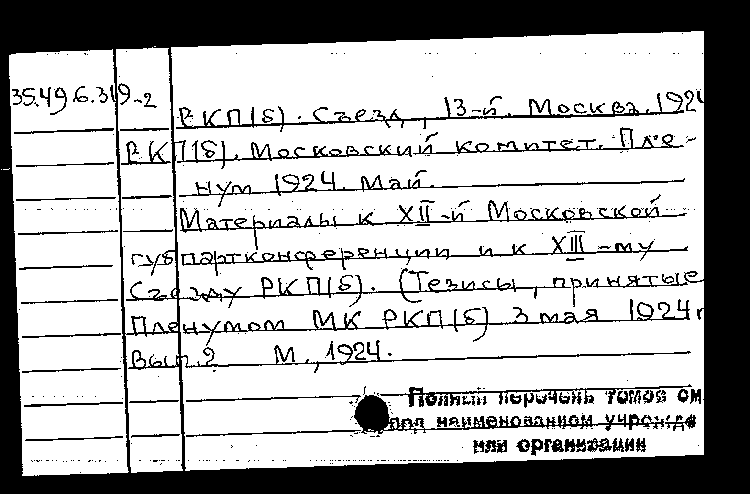 35.49.6.319-2
РКП(б). Съезд, 13-й. Москва. 1924
РКП(б). Московский комитет. Пле-
нум 1924. Май.
Материалы к XII-й Московской
губпартконференции и к XIII-му
Съезду РКП(б). (Тезисы, принятые
Пленумом МК РКП(б) 3 мая 1924 г
Вып. 2 М., 1924.
Полный перечень томов см
под наименованием учрежде
или организации